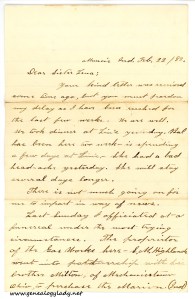 Muncie Ind. Feb. 22 / 88.
Dear Sister Erna:
Your kind letter was received
some time ago, but you must pardon
my delay as I have been rushed for
the last few weeks. We are well.
We took dinner at Liz's yesterday. That
has been her is spending
a few days at Liz's. She had a bad
headache yesterday. She will stay
several days longer.
There is not much going on for
me to impart in way of news.
Last Sunday I officiated at a
funeral under the most trying
circumstances. The proprietor
of the Gas Works here - A. M. Holland
went into partnership with his
brother Milton, of Mechanicstown
Ohio, to purchase the Marion (Ind)
www.genealogylady.net